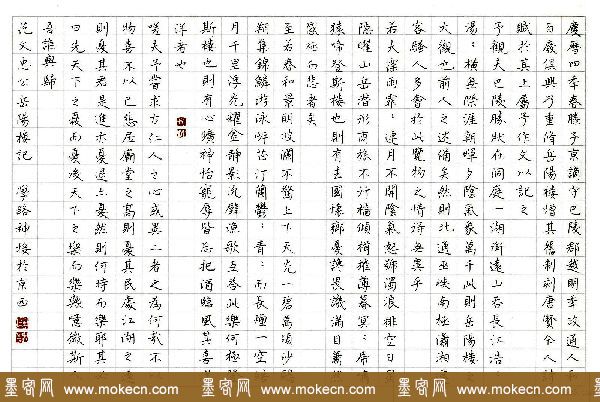 慶曆四年春滕子京謫守巴陵郡越明年政通人和
百廢俱興乃重修岳陽樓增其舊制刻唐賢今人詩
賦於其上屬予作文以記之
予觀夫巴陵勝狀在洞庭一湖銜遠山吞長江浩
湯:橫無際涯朝暉夕陰氣象萬千此則岳陽樓之
大觀也前人之述備矣然則北通巫峽南極瀟湘
客騷人多會於此覽物之情得無異乎
若夫霪雨霏:連月不開陰風怒號濁浪排空日星
隱曜山岳潛形商旅不行檣傾楫摧薄暮冥:虎嘯
猿啼登斯樓也則有去國懷鄉憂讒畏譏滿目蕭
感極而悲者矣
至若春和景明波瀾不驚上下天光一碧萬頃沙鷗
翔集錦鱗游泳岸芷汀蘭鬱:青:而長煙一空皓
月千里浮光耀金靜影沉璧漁歌互答此樂何極登
斯樓也則有心曠神怡寵辱皆忘把酒臨風其喜洋
洋者也
嗟夫予嘗求古仁人之心或異二者之為何哉不以
物喜不以己悲居廟堂之高則憂其民處江湖之遠
則憂其君是進亦憂退亦憂然則何時而樂耶其必
曰先天下之憂而憂後天下之樂而樂歟噫微斯人
吾誰與歸
范文忠公岳陽樓記 於京西
墨客网 www.mokecn.com 墨客网 www.mokecn.com 墨客网 www.mokecn.com